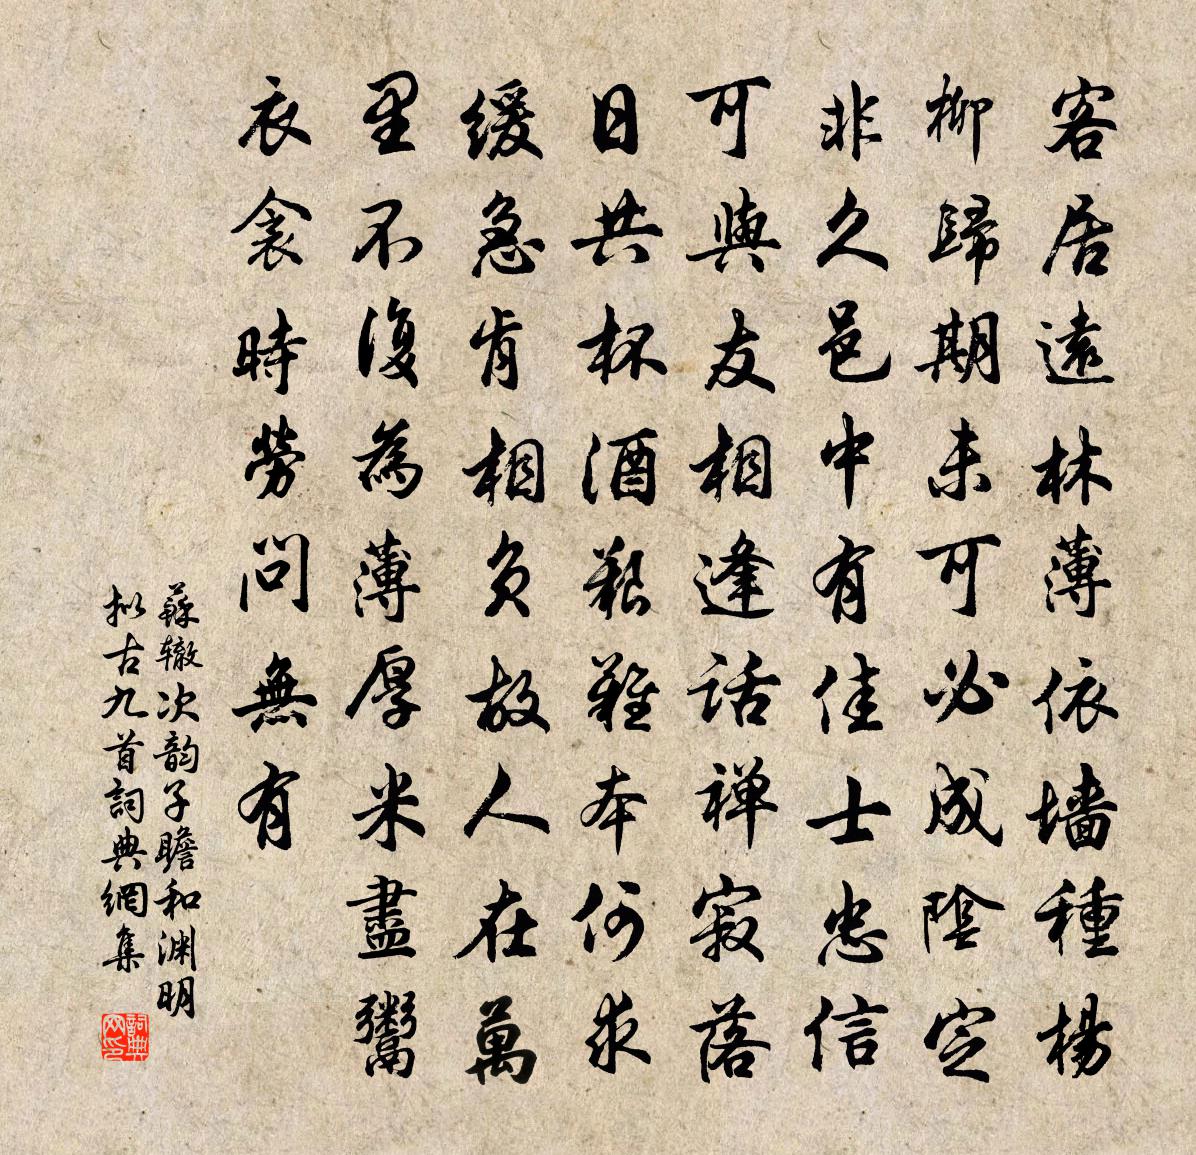 客居遠林薄依墙種楊
柳歸期未可必成陰定
非久邑中有佳士忠信
可與友相逢話禅寂落
日共杯酒艱難本何求
缓急肯相负故人在萬
里不復為薄厚米盡鬻
衣衾時勞問無有
蘇辙次韵子瞻和渊明
拟古九首詞典網集
詞典
网印